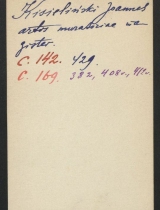 Kisieliński Joannes
artis muratoriae ma
gister.
C. 142. 429.
C. 169. 382, 408v, 412v.